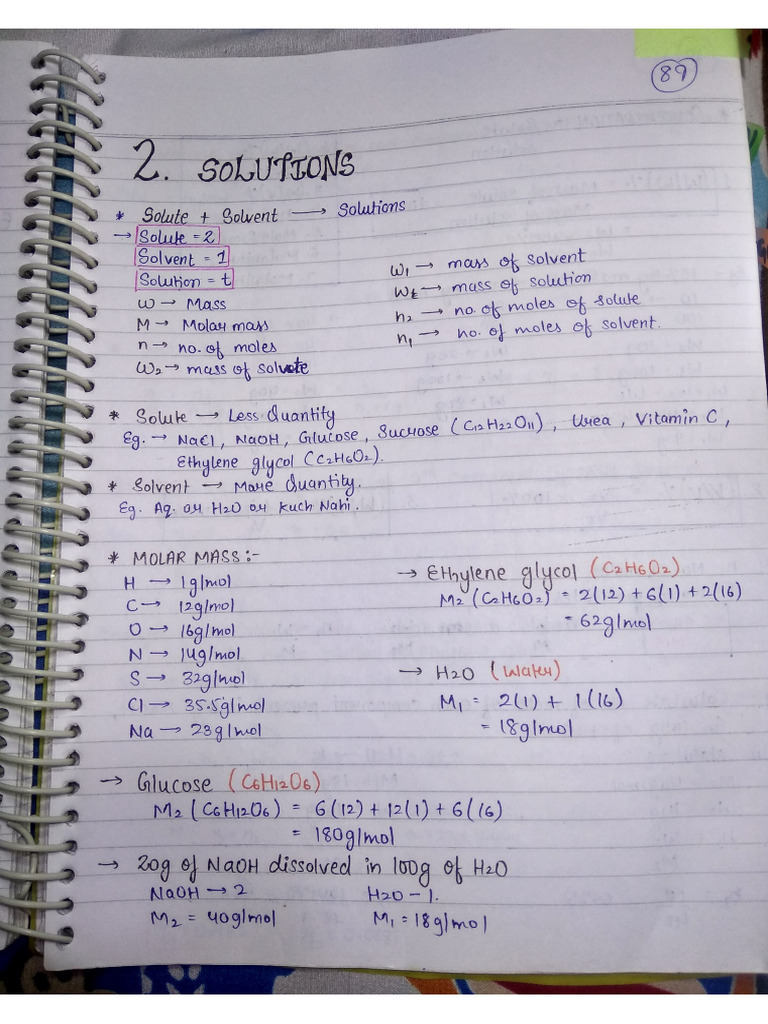 89
2. SOLUTIONS
* Solute + Solvent ⟶ Solutions
→ Solute = 2
Solvent = 1
Solution = t
W → Mass
M → Molar mass
n → no. of moles
W₂ → mass of solute
W₁ → mass of solvent
Wt → mass of solution
n₂ → no. of moles of solute
n₁ → no. of moles of solvent.
* Solute → Less Quantity
Eg. → NaCl, NaOH, Glucose, Sucrose (C12H22O11), Urea, Vitamin C,
Ethylene glycol (C2H6O2).
* Solvent → More Quantity.
Eg. Aq. or H2O or Kuch Nahi.
* MOLAR MASS :-
H → 1g/mol
C → 12g/mol
O → 16g/mol
N → 14g/mol
S → 32g/mol
Cl → 35.5g/mol
Na → 23g/mol
→ Ethylene glycol (C2H6O2)
M2 (C2H6O2) = 2(12) + 6(1) + 2(16)
= 62g/mol
→ H2O (Water)
M1 = 2(1) + 1(16)
= 18g/mol
→ Glucose (C6H12O6)
M2 (C6H12O6) = 6(12) + 12(1) + 6(16)
= 180g/mol
→ 20g of NaOH dissolved in 100g of H2O
NaOH → 2 H2O - 1.
M2 = 40g/mol M1 = 18g/mol